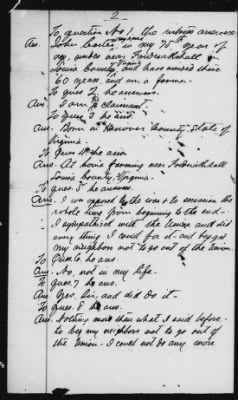 2
To question No 1, the witness answers
Ans. John in my 75th year of
age, reside near Frederickshall
Louisa County, have resided there
60 years, and am a farmer.
To ques 2, he answers
Ans I am a claimant.
To ques 3 he said
Ans. Born in Hanover County, State of
Virginia.
To Ques 4 he ans.
Ans. At home farming near Frederickshall
Louisa County, Virginia.
To ques. 5 he answers
Ans. I was opposed to the war & to secession the
whole time from beginning to the end.
I sympathised with the Union and did
every thing I could for it - and begged
my neighbors not to go out of the Union
To Ques 6 he ans.
Ans. No, not in my life.
To ques. 7 he ans.
Ans. Yes, Sir, and did do it.
To ques. 8 he ans.
Ans. Nothing more than what I said before -
to beg my neighbors not to go out of
the Union - I could not do any more